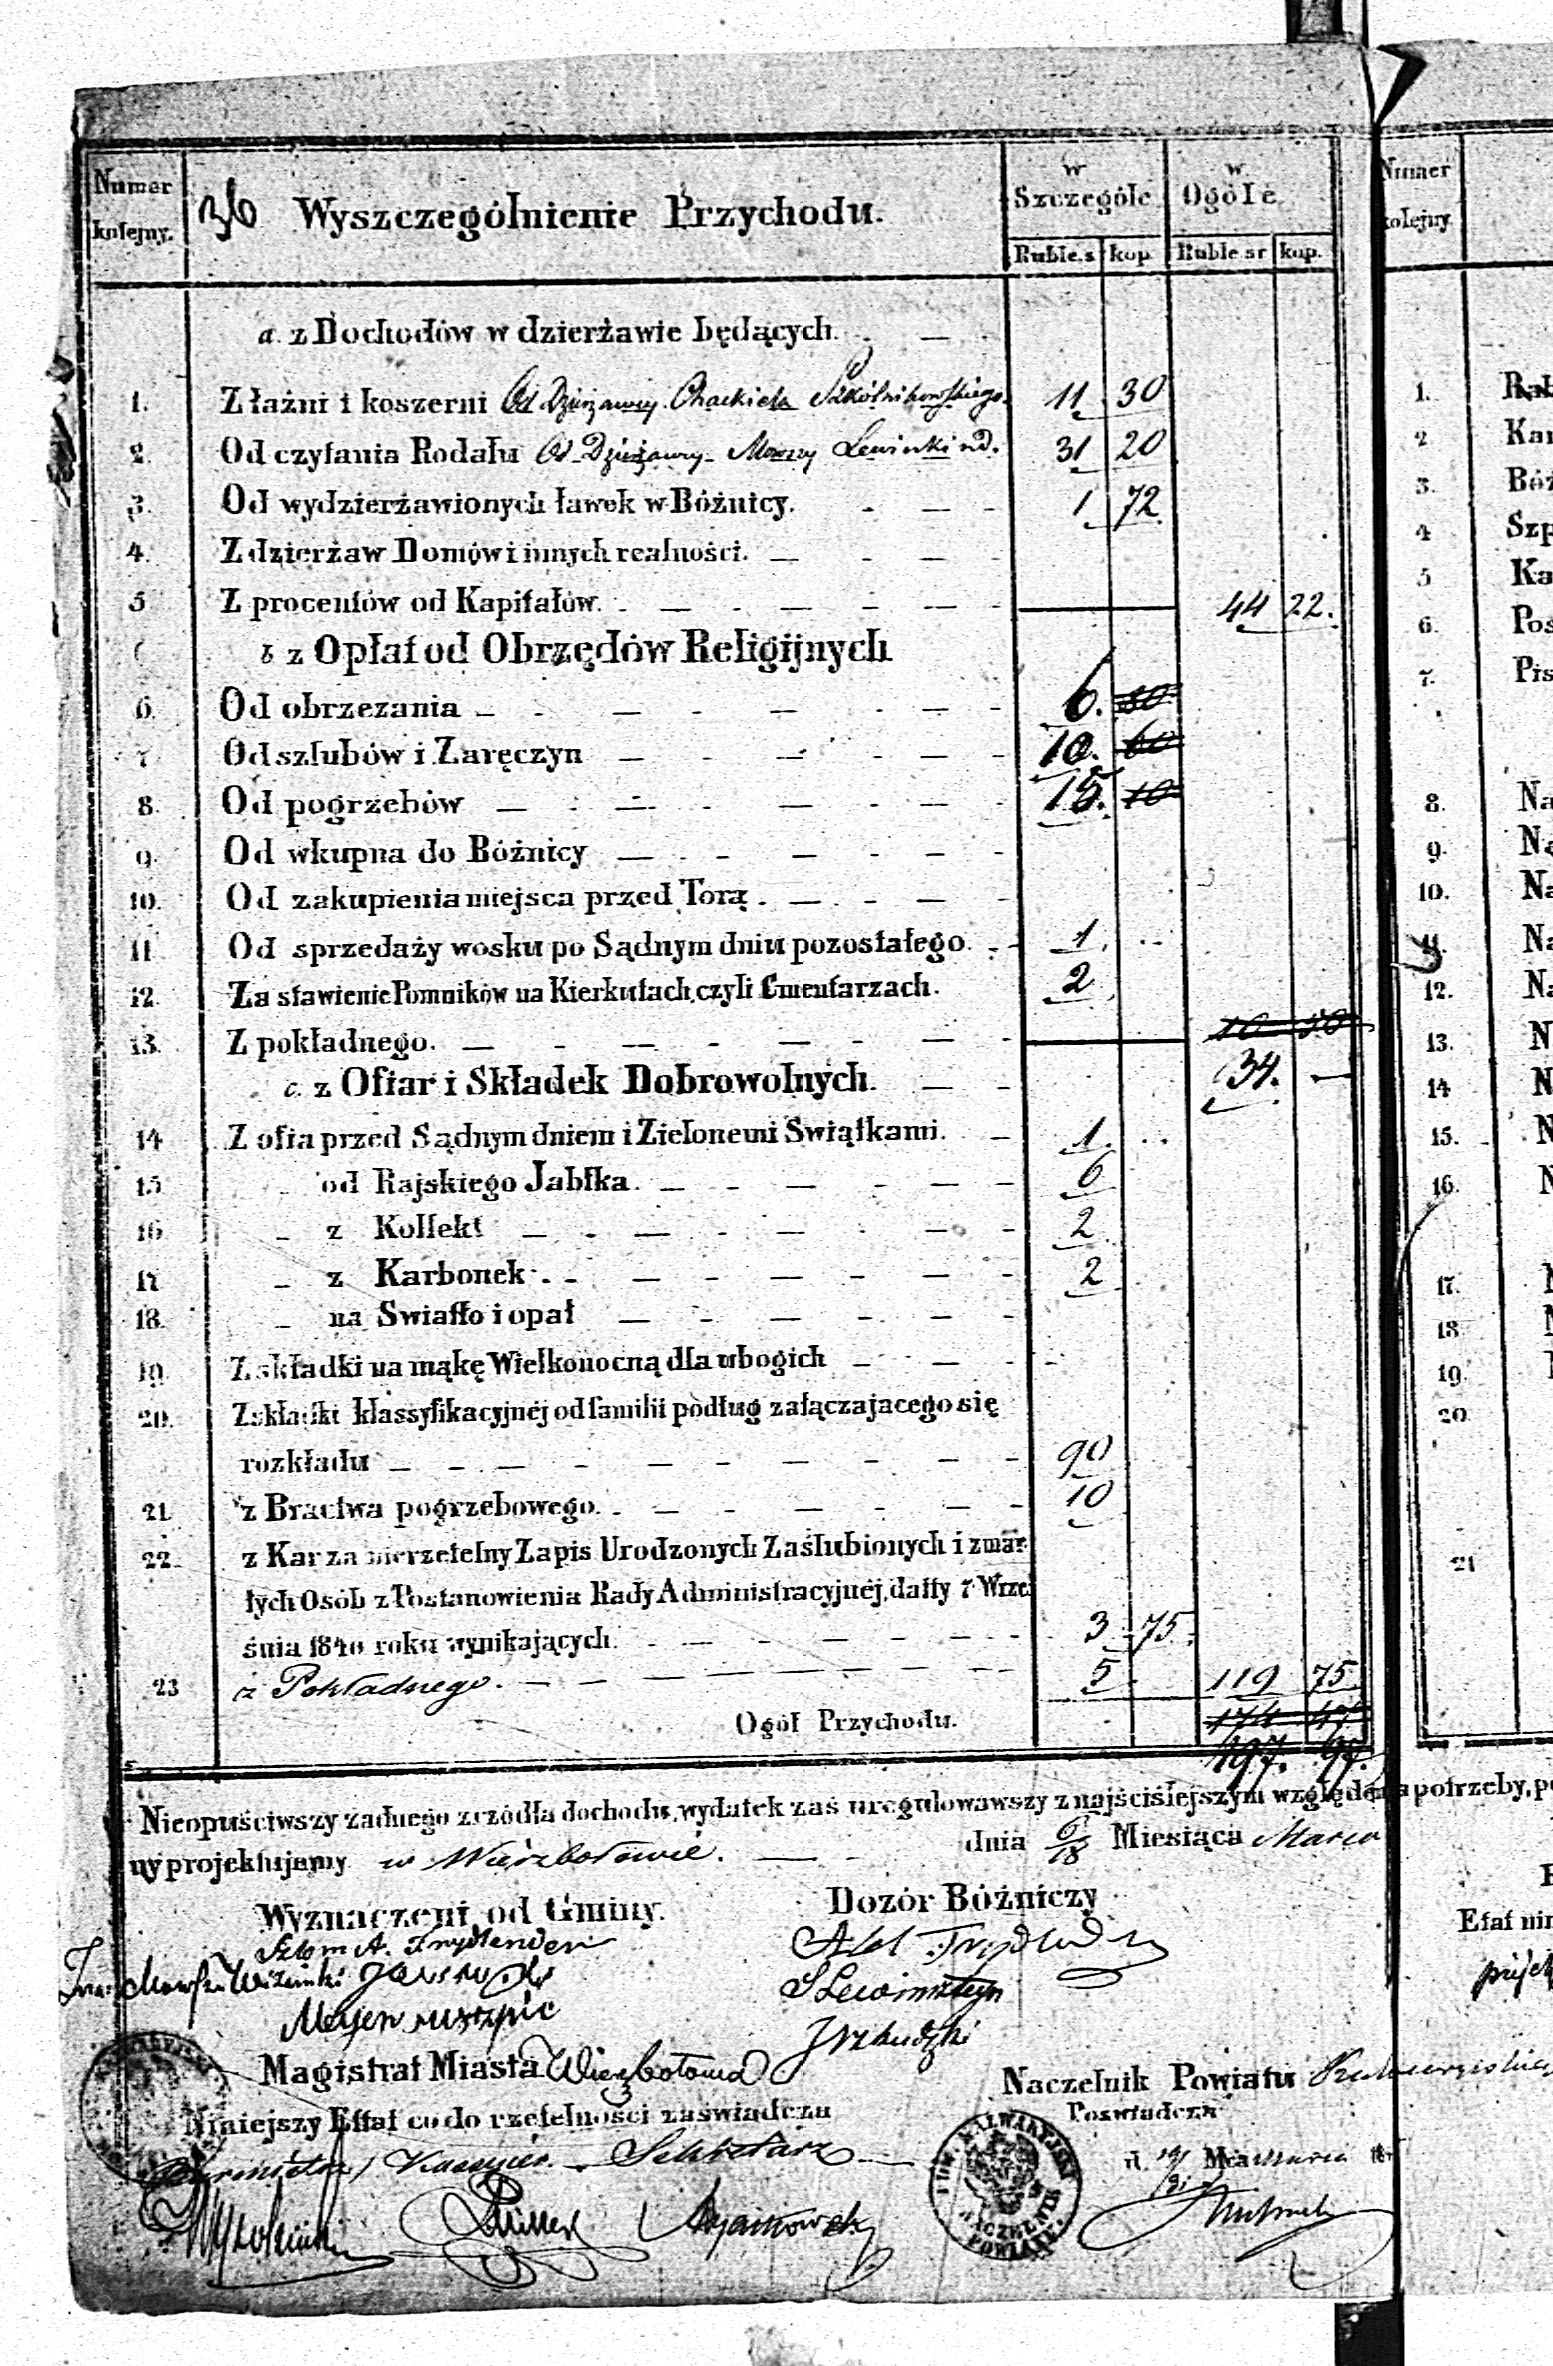 Numer kolejny.
36 Wyszczególnienie Przychodu.
w Szczególe
w Ogóle
Ruble.s kop Ruble sr kop.
a. z Dochodów w dzierżawie będących.
1. Z łaźni i koszerni Od Dzierżawcy 11 30
2. Od czytania Rodału Od Dzierżawcy 31 20
3. Od wydzierżawionych ławek w Bóżnicy. 1 72
4. Z dzierżaw Domów i innych realności.
5 Z procentów od Kapitałów. 44 22.
b z Opłat od Obrzędów Religijnych
6. Od obrzezania 6.
7 Od szlubów i Zaręczyn 10. 60
8. Od pogrzebów 15. 10
9. Od wkupna do Bóżnicy
10. Od zakupienia miejsca przed Torą.
11 Od sprzedaży wosku po Sądnym dniu pozostałego. 1.
12. Za stawienie Pomników na Kierkutach, czyli Cmentarzach. 2
13. Z pokładnego.
c. z Ofiar i Składek Dobrowolnych. 34. —
14 Z ofia przed Sądnym dniem i Zielonemi Swiątkami. 1.
15 od Rajskiego Jabłka. 6
16 z Kollekt 2
17 z Karbonek. 2
18. na Swiatło i opał
19. Z składki na mąkę Wielkonocną dla ubogich
20. Z składki klassyfikacyjnéj od familii podług załączajacego się
rozkładu 90
21. z Bractwa pogrzebowego. 10
22. z Kar za nierzetelny Zapis Urodzonych Zaślubionych i zmar
łych Osób z Postanowienia Rady Administracyjnéj, datty 7 Wrze
śnia 1840 roku wynikających. 3 75.
23 z Pokładnego. 5 119 75
Ogół Przychodu. 174 47
197. 97.
Nieopuściwszy żadnego zrzódła dochodu, wydatek zaś uregulowawszy z najściślejszym względem potrzeby, p
ny projektujemy w Wierzbołowie. dnia 6/18 Miesiąca Marca
Wyznaczeni od Gminy.
Dozór Bóżniczy
Magistrat Miasta Wierzbołowa
Niniejszy Ettat co do rzetelności zaświadcza
Burmistrz Kassyer. Sekretarz
Naczelnik Powiatu
Poświadcza
NACZELNIK POWIATU
Numer kolejny
1.
2 Kar
3. Bóż
4 Szp
5 Ka
6. Pos
7. Pis
8. Na
9. Na
10. Na
11. Na
12. Na
13. N
14 N
15. N
16. N
17.
18
19.
20
21
Etat nin